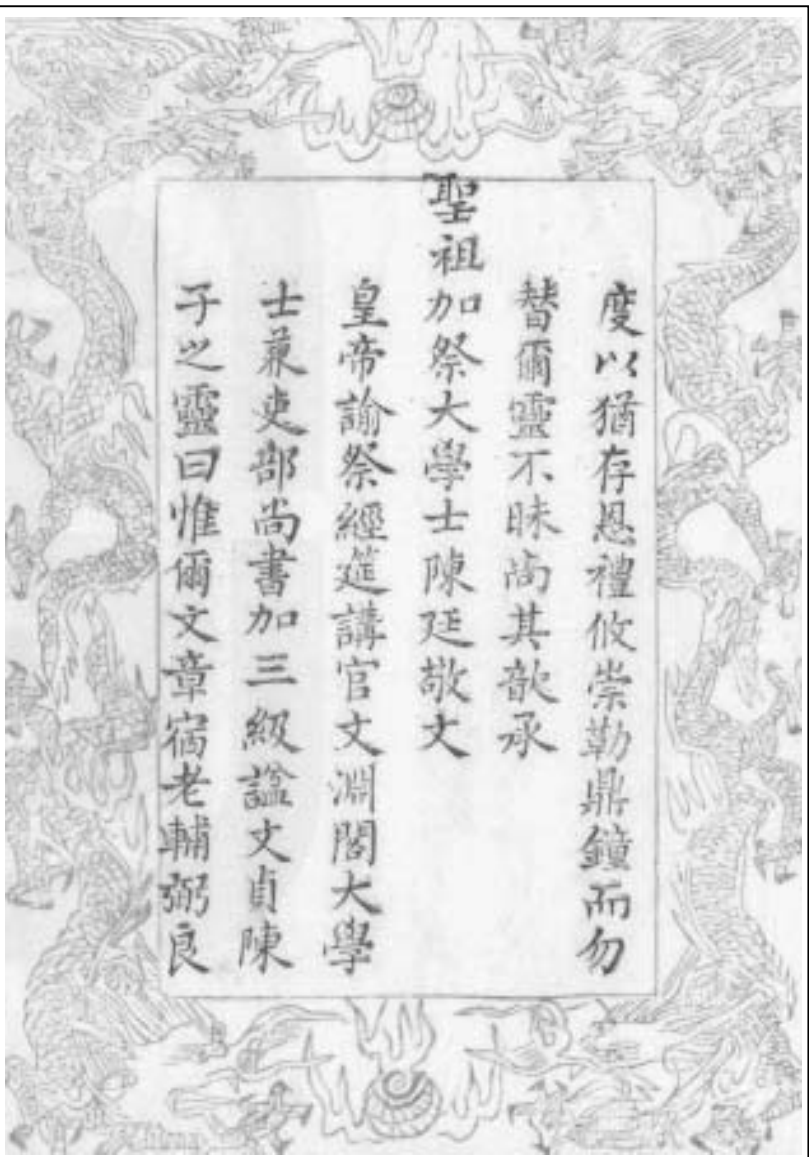 度以猶存恩禮攸崇勒鼎鐘而勿
替爾靈不昧尚其歆承
聖祖加祭大學士陳廷敬文
皇帝諭祭經筵講官文淵閣大學
士兼吏部尚書加三級諡文貞陳
子之靈曰惟爾文章宿老輔弼良